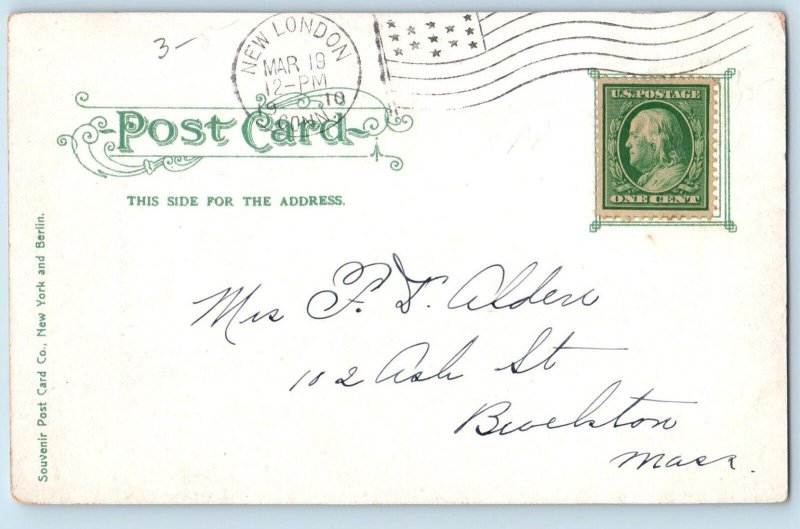 3-
NEW LONDON
MAR 19
12-PM
19 10
CONN.
Post Card
THIS SIDE FOR THE ADDRESS.
U.S. POSTAGE
ONE CENT
Souvenir Post Card Co., New York and Berlin.
Mrs F. D. Alden
102 Ash St
Mass.